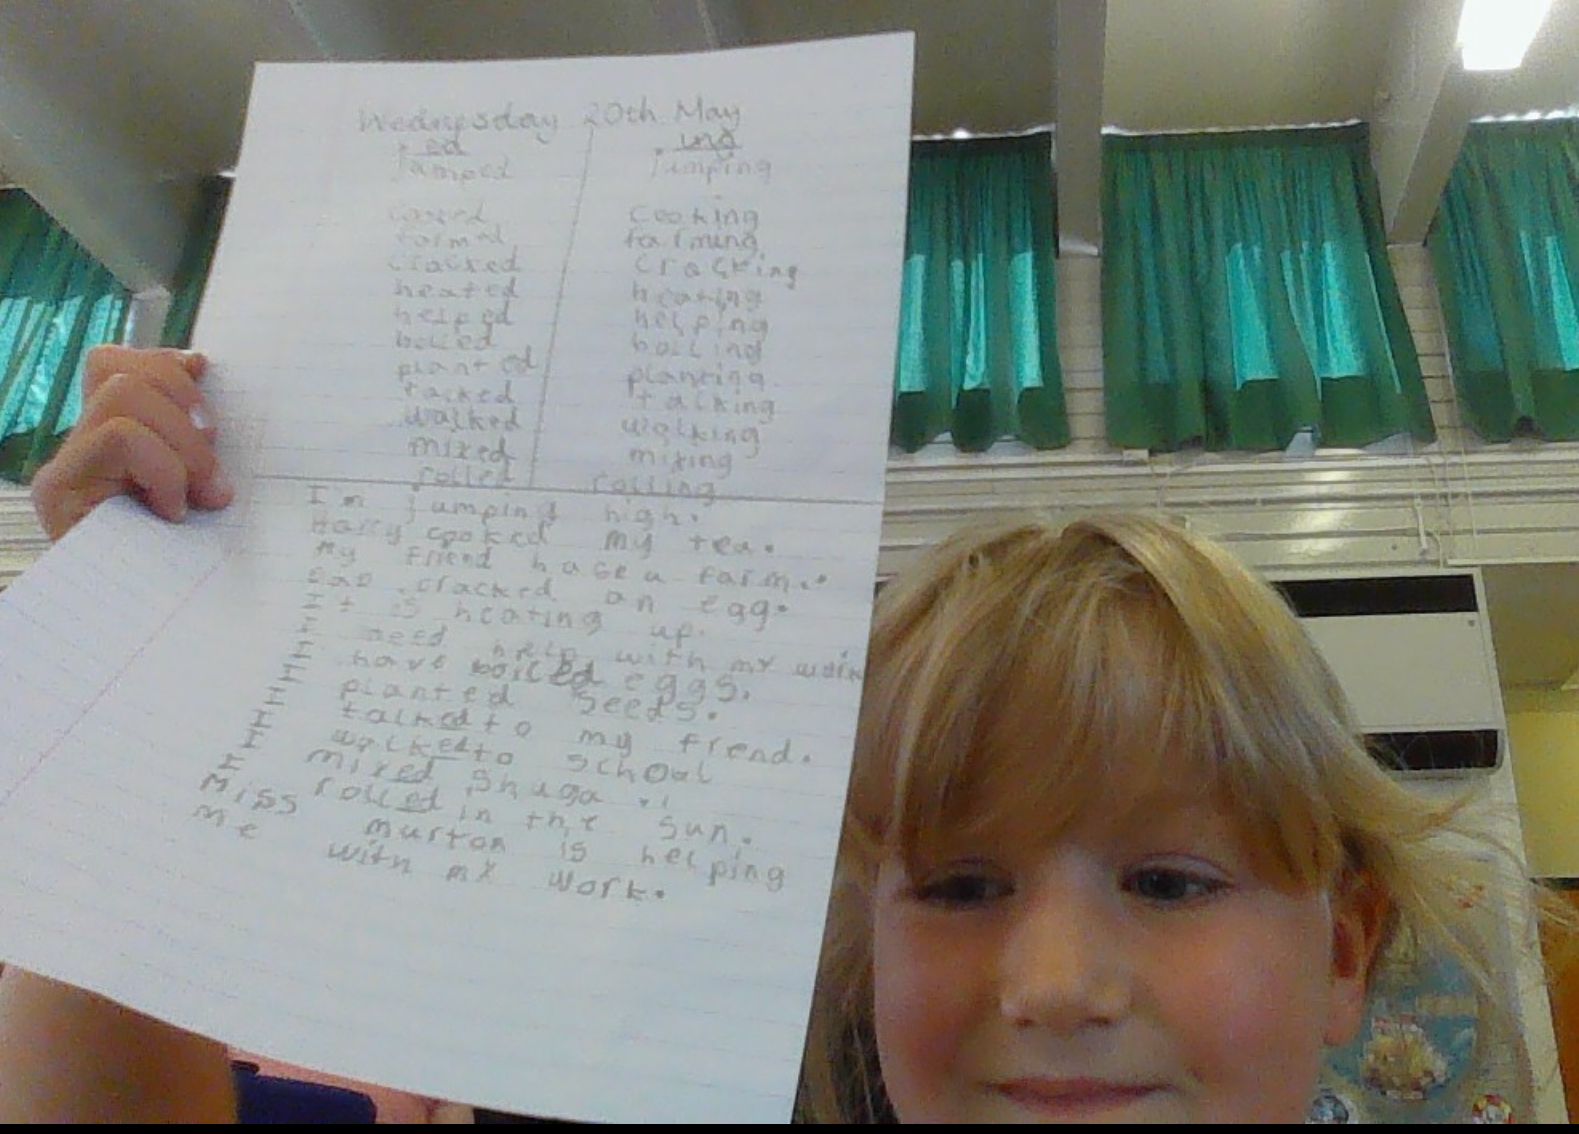 Wednesday 20th May
ed ing
jumped jumping
cooked cooking
farmed farming
cracked cracking
heated heating
helped helping
boiled boiling
planted planting
talked talking
walked walking
mixed mixing
rolled rolling
I'm jumping high.
Harry cooked my tea.
My friend hase a farm.
Dad cracked an egg.
It is heating up.
I need help with my work
I have boiled eggs.
I planted seeds.
I talked to my frend.
I walked to school
I mixed Shuga.
I rolled in the sun.
Miss murton is helping
me with my work.